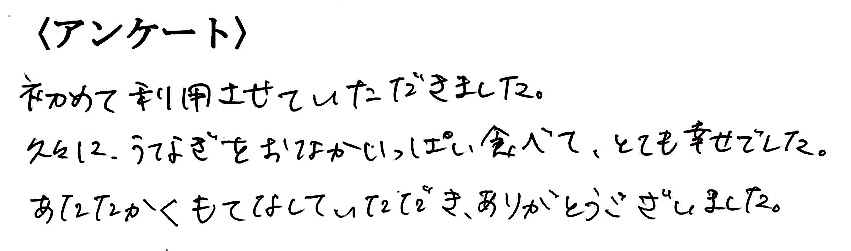 〈アンケート〉
初めて利用させていただきました。
久々に、うなぎをおなかいっぱい食べて、とても幸せでした。
あたたかくもてなしていただき、ありがとうございました。